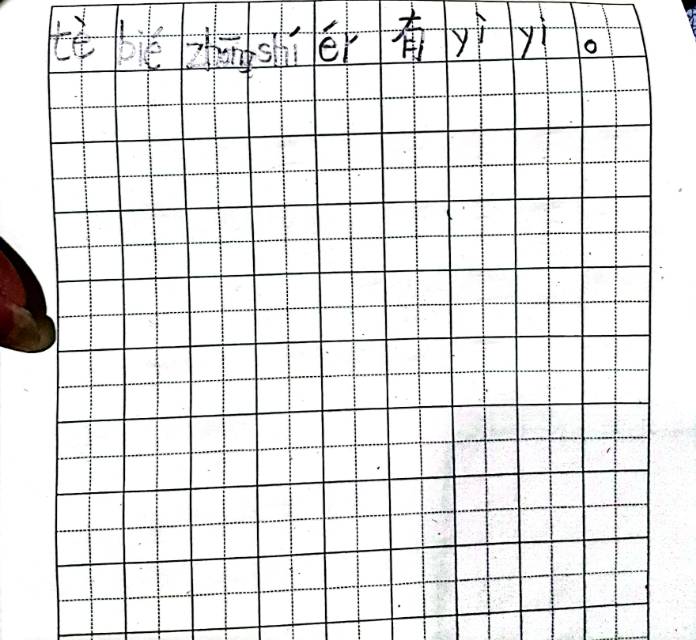 tè bié zhōng shí ér 有 yì yì 。